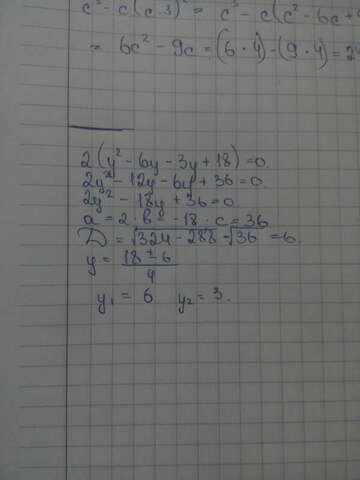 c³ - c(c-3)² = c³ - c(c² - 6c +
= 6c² - 9c = (6 · 4) - (9 · 4) = 24
2(y² - 6y - 3y + 18) = 0.
2y² - 12y - 6y + 36 = 0.
2y² - 18y + 36 = 0
a = 2 · b = -18 · c = 36
D = √324 - 288 = √36 = 6.
y = 18 ± 6
4
y₁ = 6 y₂ = 3.